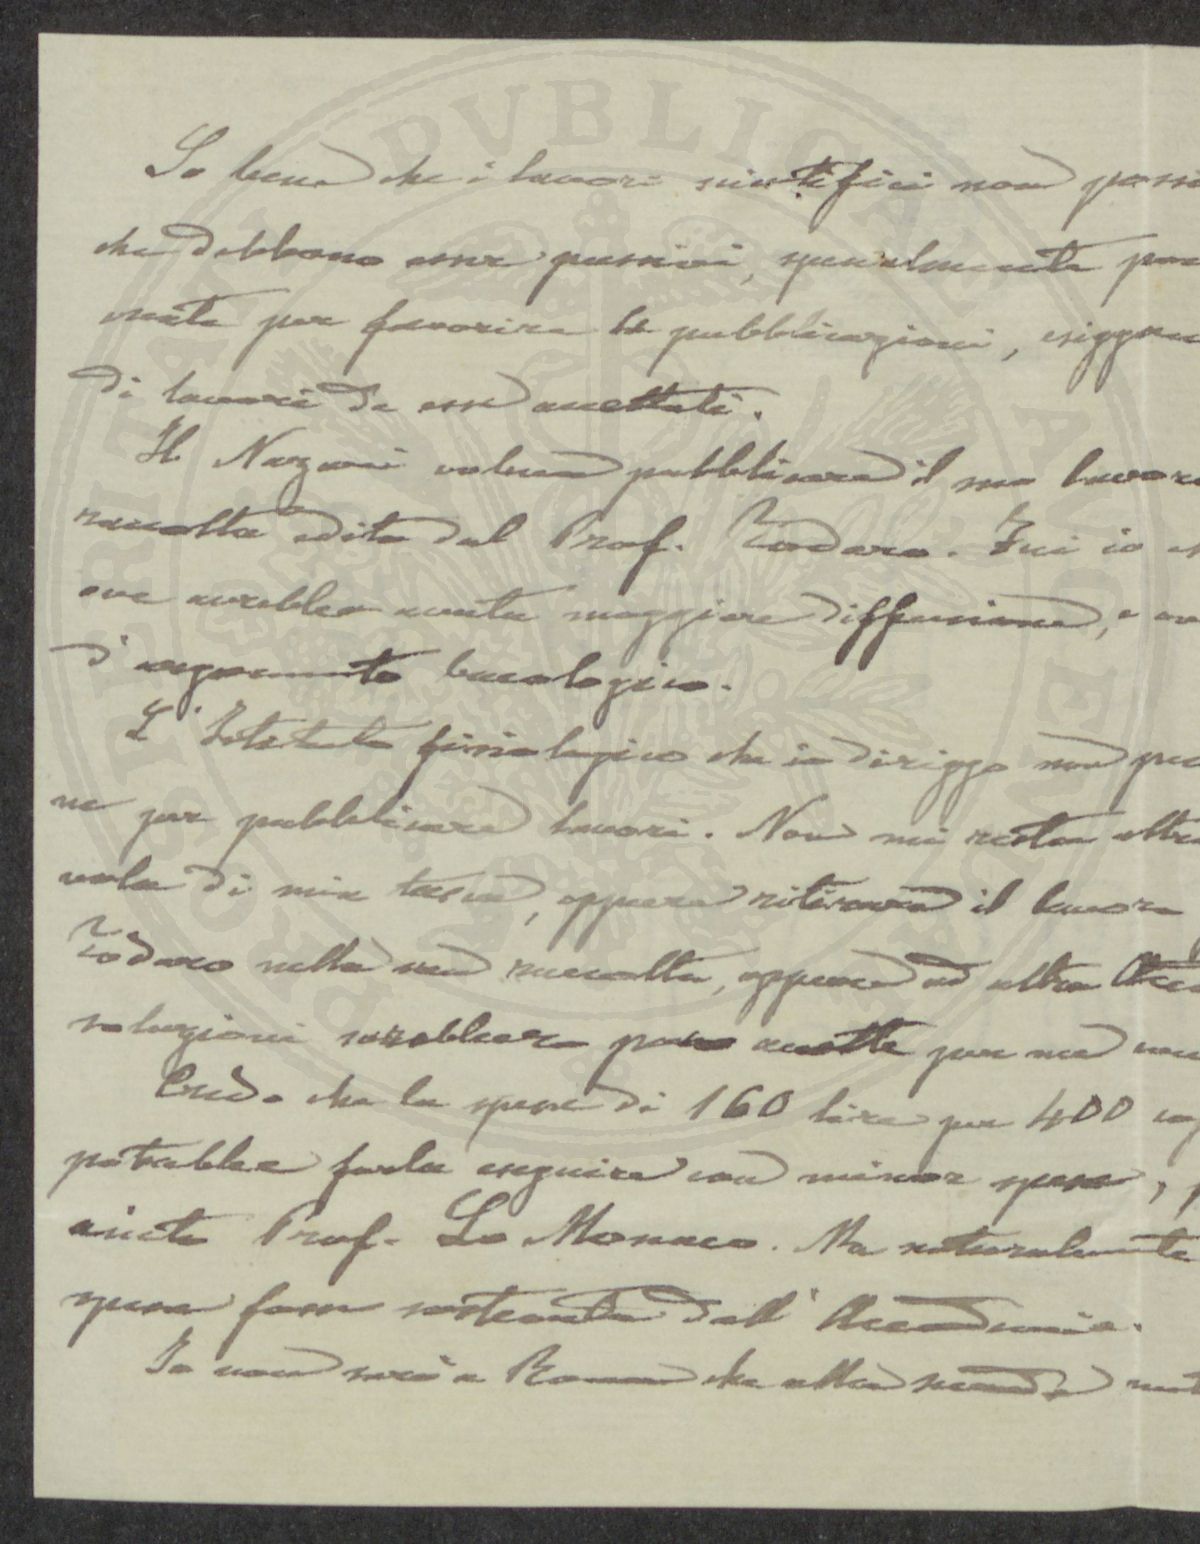 PVBLICAE
So bene che i lavori scientifici non posso
che debbono esser passivi, specialmente per
per favorire le pubblicazioni, esiggono
di lavori da essi accettati.
Il Nazari voleva pubblicare il suo lavoro
raccolta edita dal Prof. Todaro. Fui io
ove avrebbe avuta maggiore diffusione, e
d'argomento bacologico.
L'Istituto fisiologico che io diriggo non può
ne per pubblicare lavori. Non mi resta altro
di mia tasca, oppure ritirare il lavoro
Todaro nella sua raccolta, oppure ad altra
soluzioni sarebbero poco accette per me
Credo che la spesa di 160 lire per 400 cop
potrebbe farla eseguire con minor spesa,
Prof. Lo Monaco. Ma naturalmente
spesa fosse sostenuta dall'Accademia.
Io non sarò a Roma che alla seconda met